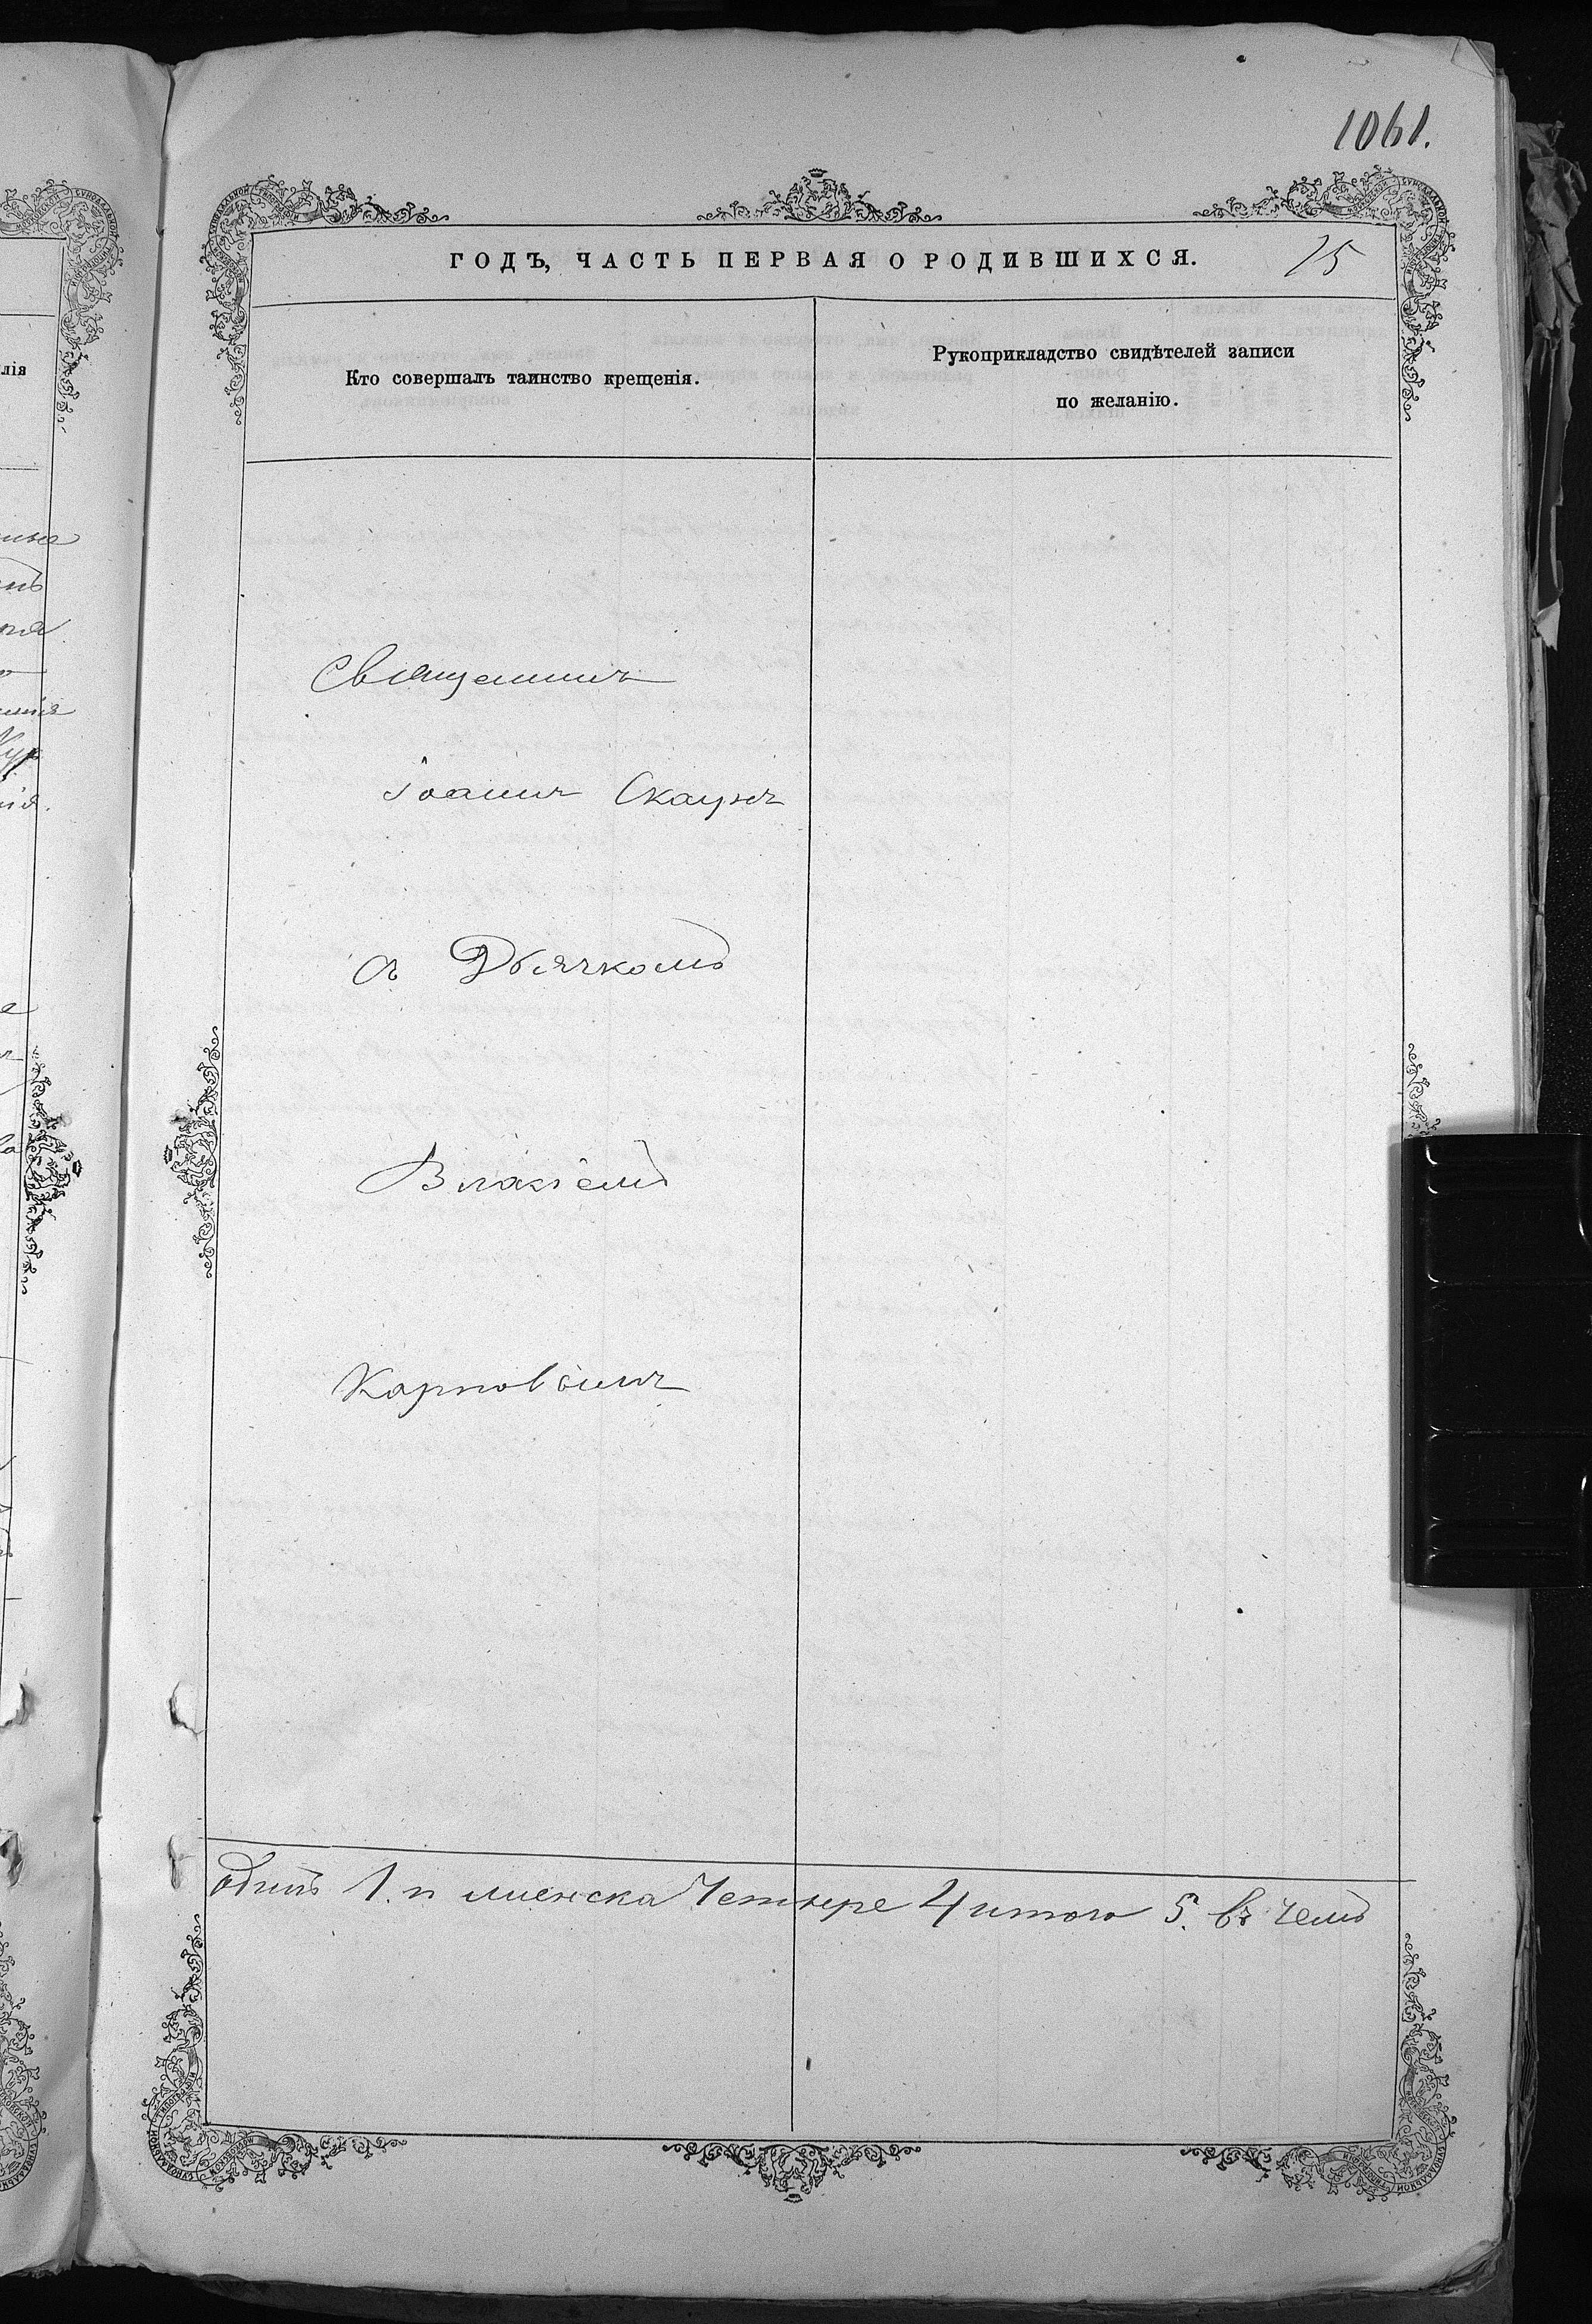 1061.
ГОДЪ, ЧАСТЬ ПЕРВАЯ О РОДИВШИХСЯ.
15
Кто совершалъ таинство крещенія.
Рукоприкладство свидѣтелей записи
по желанію.
Священникъ
Іоаннъ Скаунъ
съ Дьячкомъ
Власіемъ
Карповымъ
одинъ 1. и женска Четыре 4 итого 5. въ чемъ
лія